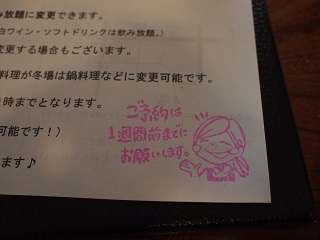 み放題に変更できます。
白ワイン・ソフトドリンクは飲み放題。)
変更する場合もございます。
料理が冬場は鍋料理などに変更可能です。
時までとなります。
可能です！)
ます♪
ご予約は
1週間前までに
お願いします。